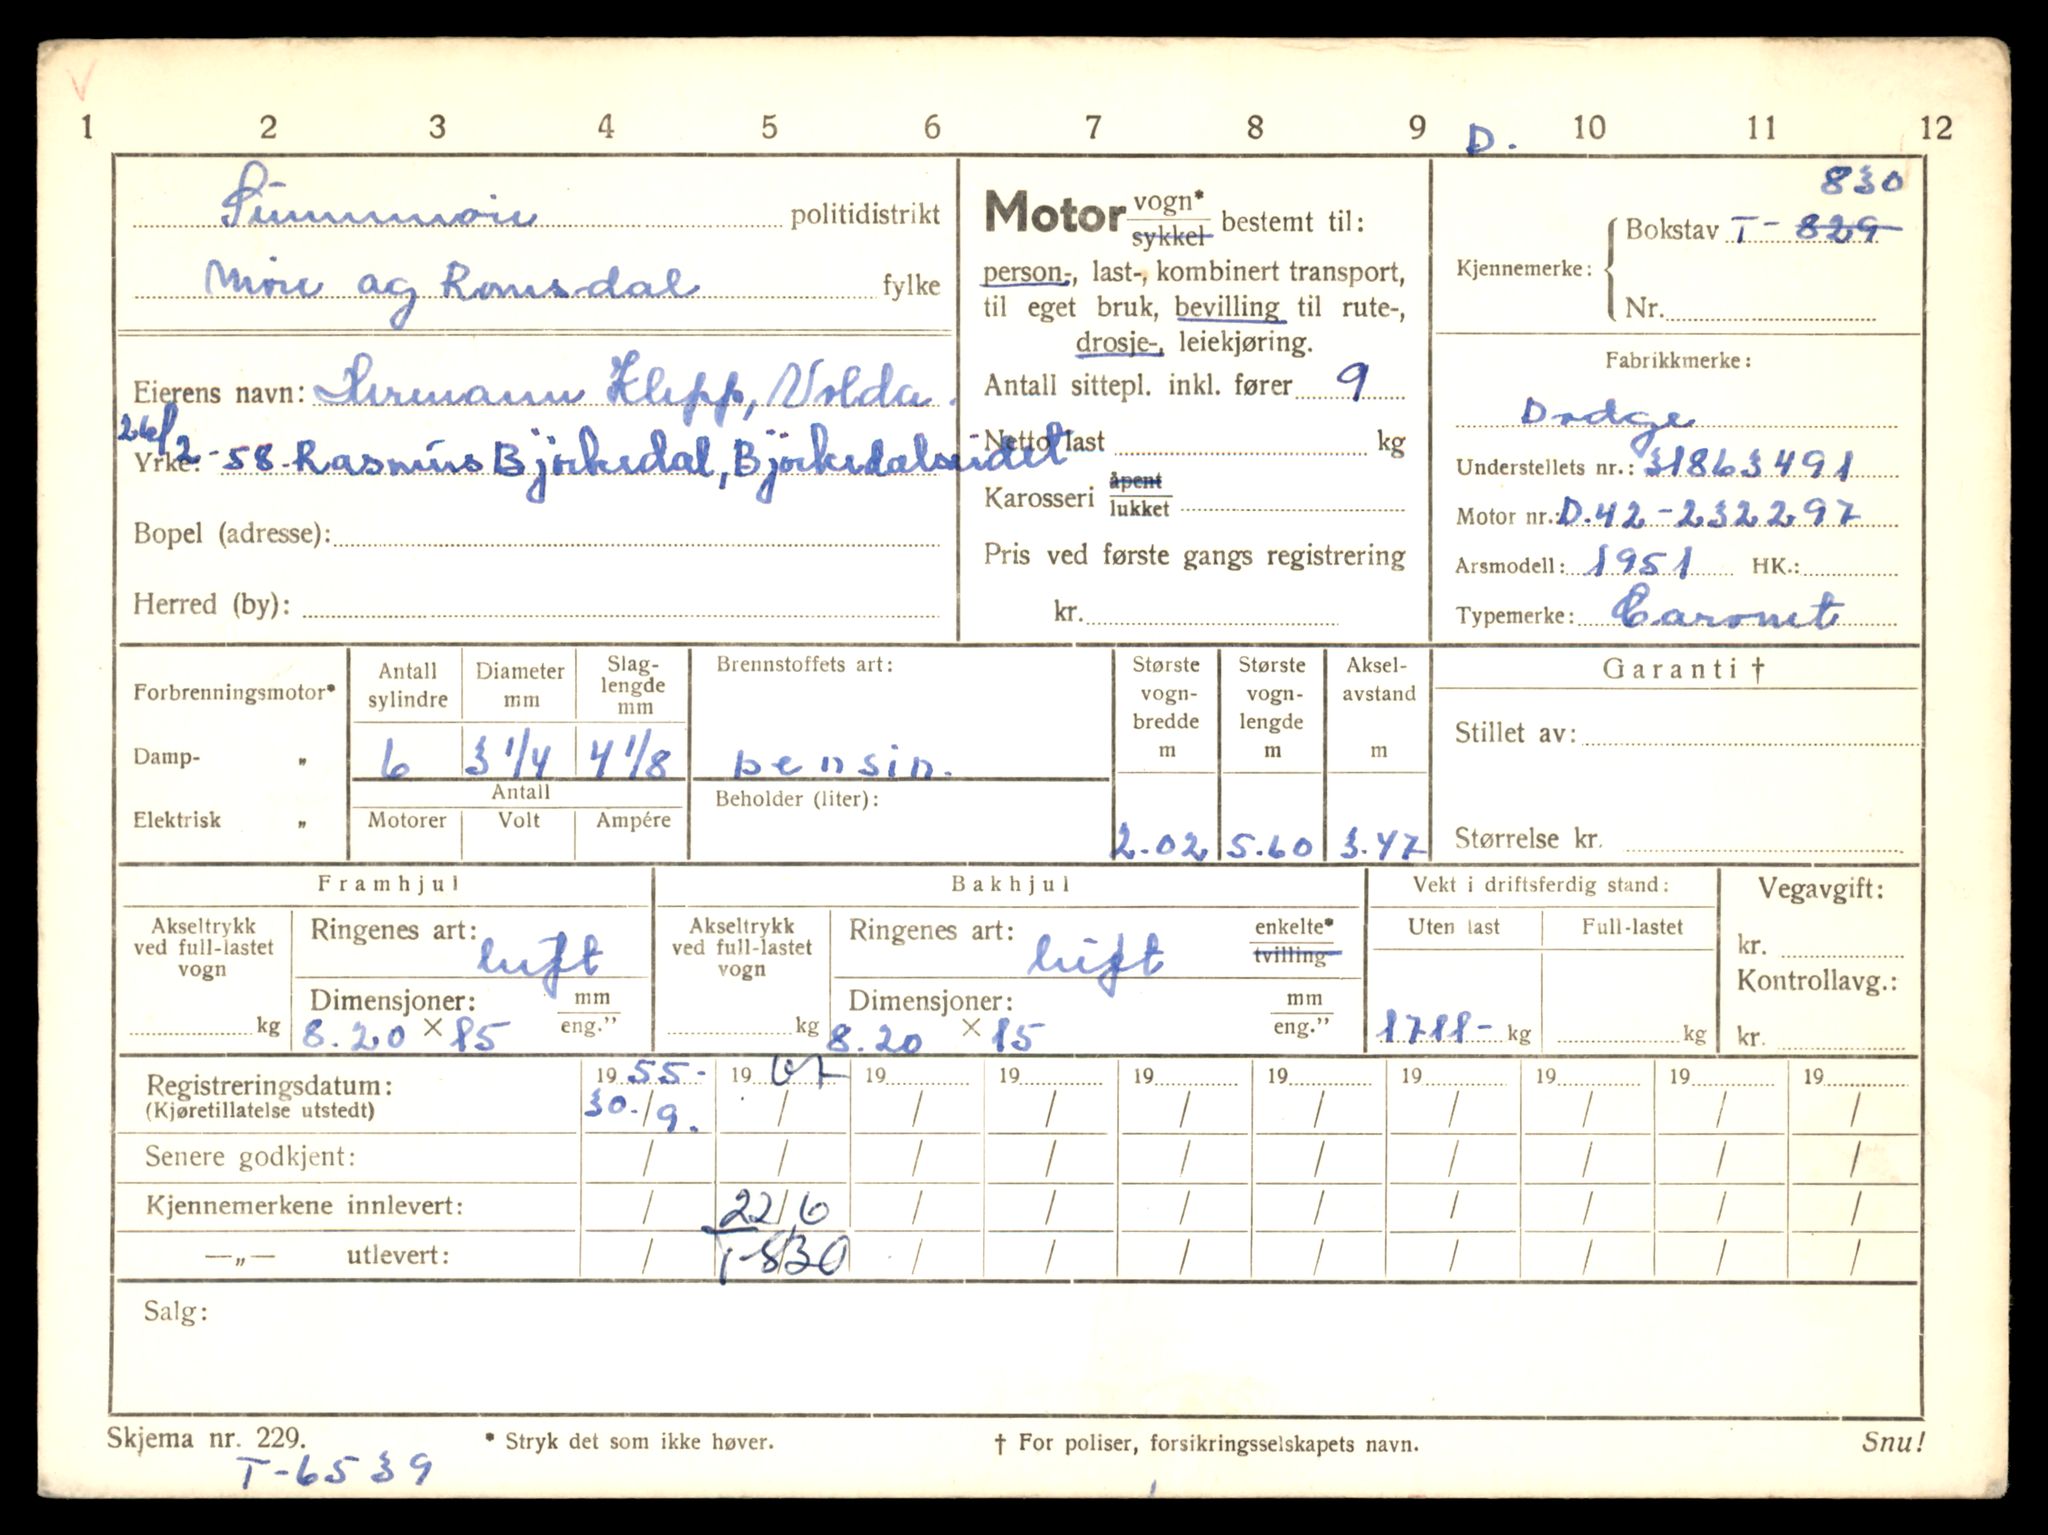 1 2 3 4 5 6 7 8 9 D. 10 11 12
Sunnmøre politidistrikt
Møre og Romsdal fylke
Eierens navn: Hermann Klepp, Volda.
26/2-58. Rasmus Björkedal, Björkedalseidet
Yrke:
Bopel (adresse):
Herred (by):
Motor vogn* / sykkel bestemt til:
person-, last-, kombinert transport,
til eget bruk, bevilling til rute-,
drosje-, leiekjøring.
Antall sittepl. inkl. fører 9
Netto last kg
Karosseri åpent / lukket
Pris ved første gangs registrering
kr.
830
Kjennemerke: Bokstav T- 829
Nr.
Fabrikkmerke:
Dodge
Understellets nr.: 31863491
Motor nr.: D.42-232297
Arsmodell: 1951 HK.:
Typemerke: Caronet
Forbrenningsmotor*
Damp- „
Elektrisk „
Antall sylindre
6
Diameter mm
3 1/4
Slag-lengde mm
4 1/8
Antall
Motorer Volt Ampére
Brennstoffets art:
bensin.
Beholder (liter):
Største vogn-bredde m
2.02
Største vogn-lengde m
5.60
Aksel-avstand m
3.47
Garanti †
Stillet av:
Størrelse kr.
Framhjul
Akseltrykk ved full-lastet vogn
kg
Ringenes art: luft
Dimensjoner: mm / eng.”
8.20 × 15
Bakhjul
Akseltrykk ved full-lastet vogn
kg
Ringenes art: luft enkelte* / tvilling
Dimensjoner: mm / eng.”
8.20 × 15
Vekt i driftsferdig stand:
Uten last Full-lastet
1711- kg kg
Vegavgift:
kr.
Kontrollavg.:
kr.
Registreringsdatum: 19 55- 19 67 19 19 19 19 19 19 19 19
(Kjøretillatelse utstedt) 30./9. / / / / / / / / /
Senere godkjent: / / / / / / / / / /
Kjennemerkene innlevert: / 22/6 / / / / / / / /
—„— utlevert: / T-830 / / / / / / / /
Salg:
Skjema nr. 229. * Stryk det som ikke høver. † For poliser, forsikringsselskapets navn. Snu!
T-6539